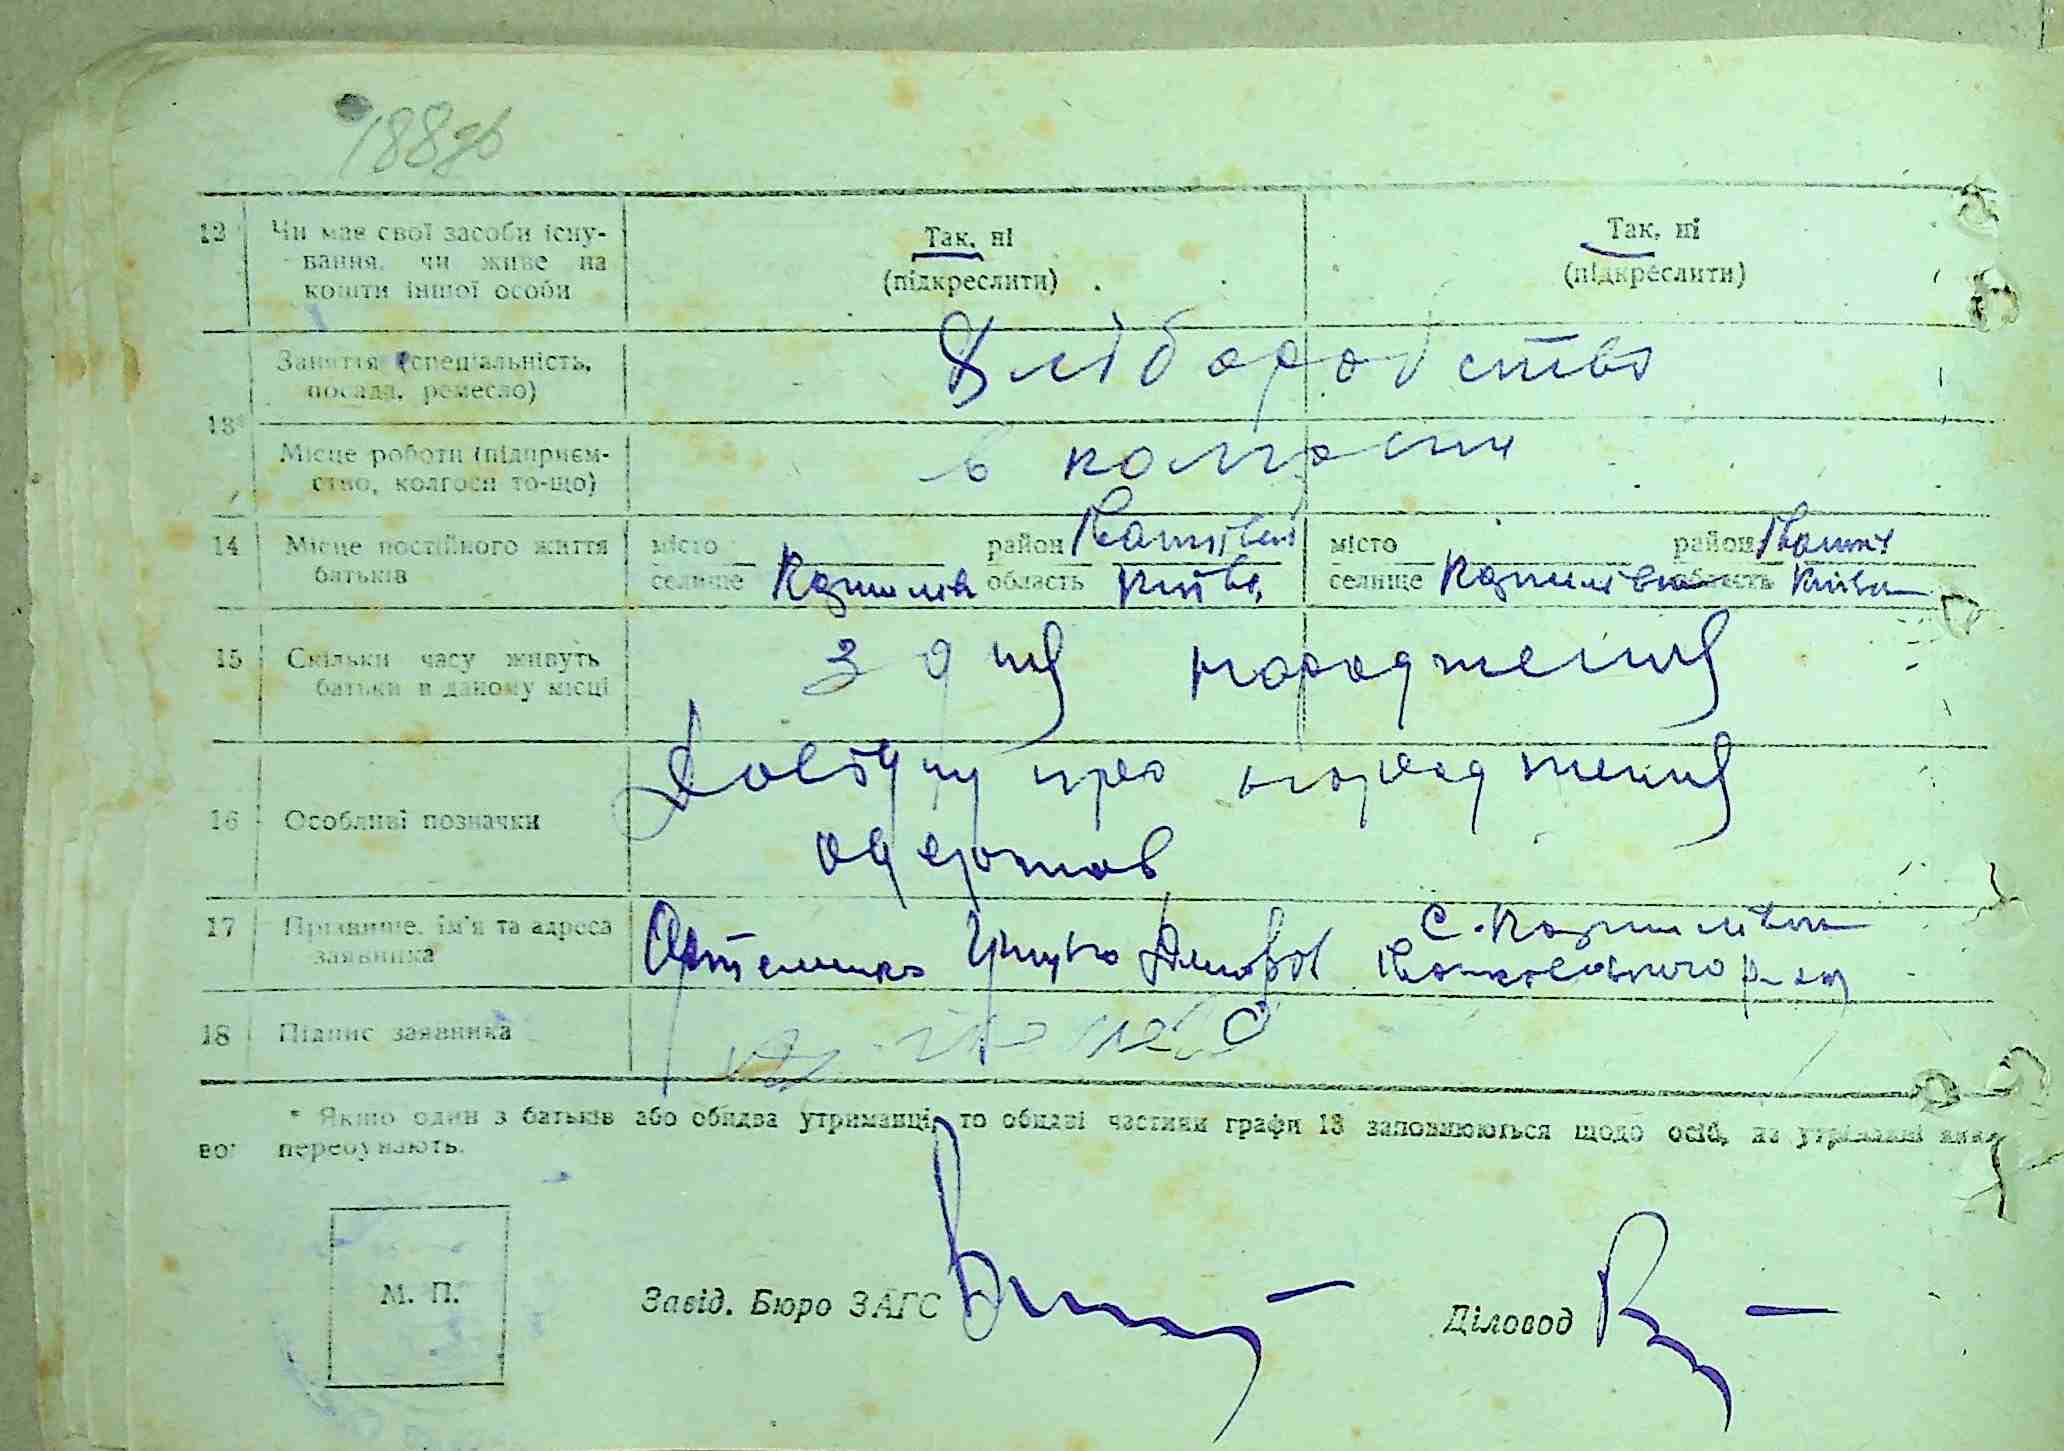 188зв
12 Чи має свої засоби існу- Так, ні Так, ні
вання, чи живе на (підкреслити) (підкреслити)
кошти іншої особи
Заняття (спеціальність, Хліборобство
посада, ремесло)
13*
Місце роботи (підприєм- в колгоспі
ство, колгосп то-що)
14 Місце постійного життя місто район місто район
батьків селище область Київс. селище область Київс
15 Скільки часу живуть з дня народження
батьки в даному місці
Довідку про народження
16 Особливі позначки
одержав
17 Прізвище, ім'я та адреса с.
заявника Артеменко р-ну
18 Підпис заявника
* Якщо один з батьків або обидва утриманці, то обидві частини графи 13 заповнюються щодо осіб, на утриманні яких
во перебувають.
М. П.
Завід. Бюро ЗАГС Діловод